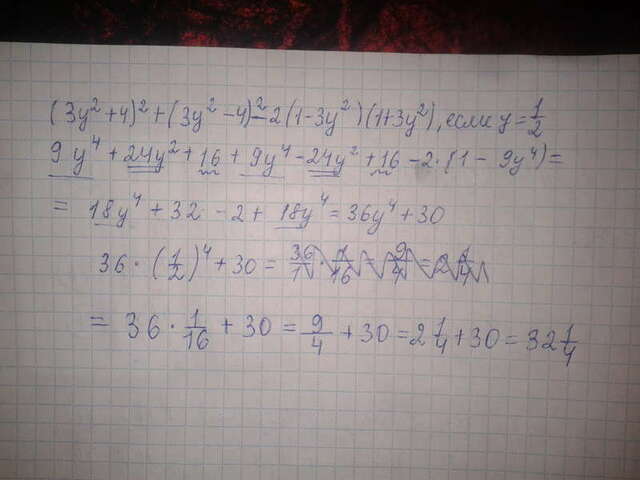 (3y²+4)²+(3y²-4)²-2(1-3y²)(1+3y²), если y=1/2
9y⁴+24y²+16+9y⁴-24y²+16-2·(1-9y⁴)=
=18y⁴+32-2+18y⁴=36y⁴+30
36·(1/2)⁴+30=36/1·1/16=9/4=2 1/4
=36·1/16+30=9/4+30=2 1/4+30=32 1/4